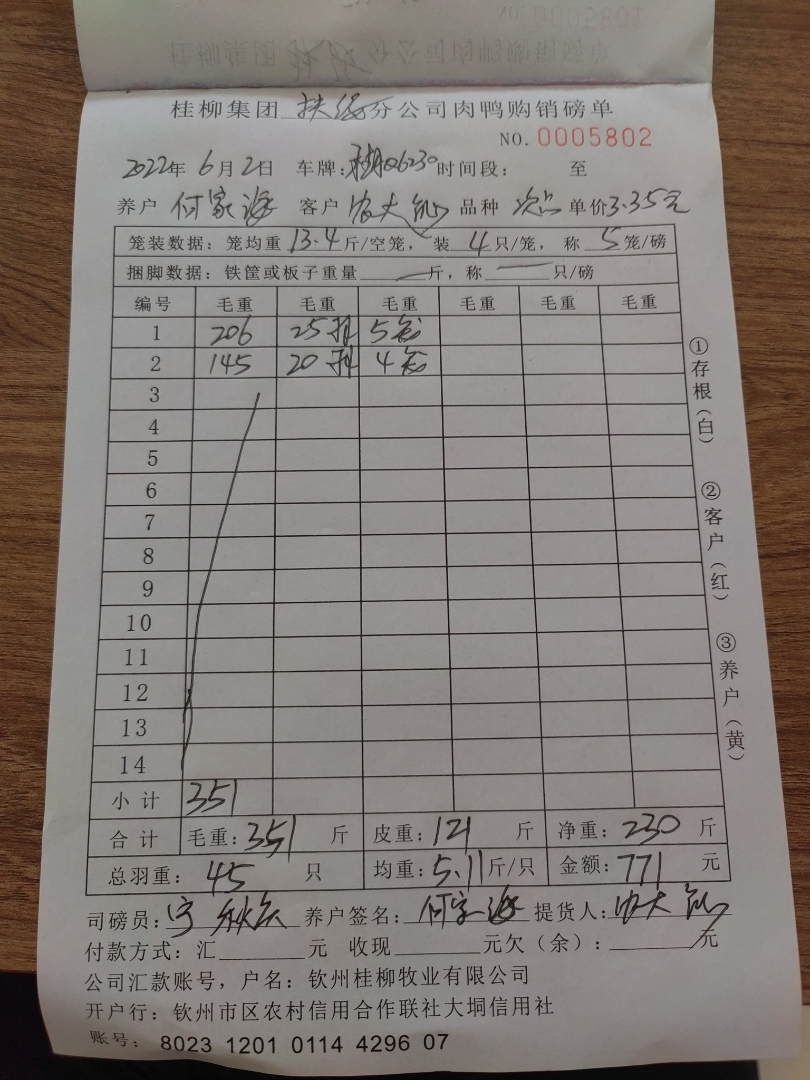 桂柳集团 扶绥 分公司肉鸭购销磅单
NO. 0005802
2022年 6月2日 车牌: 06230 时间段: 至
养户 何家海 客户 农大 品种 次品 单价 3.35元
笼装数据: 笼均重 13.4 斤/空笼, 装 4 只/笼, 称 5 笼/磅
捆脚数据: 铁筐或板子重量 — 斤, 称 — 只/磅
编号 毛重 毛重 毛重 毛重 毛重 毛重
1 206 25 5
2 145 20 4
3
4
5
6
7
8
9
10
11
12
13
14
小计 351
合计 毛重: 351 斤 皮重: 121 斤 净重: 230 斤
总羽重: 45 只 均重: 5.11 斤/只 金额: 771 元
司磅员: 养户签名: 何家海 提货人: 农大
付款方式: 汇 元 收现 元欠(余): 元
公司汇款账号, 户名: 钦州桂柳牧业有限公司
开户行: 钦州市区农村信用合作联社大垌信用社
账号: 8023 1201 0114 4296 07
①存根(白) ②客户(红) ③养户(黄)